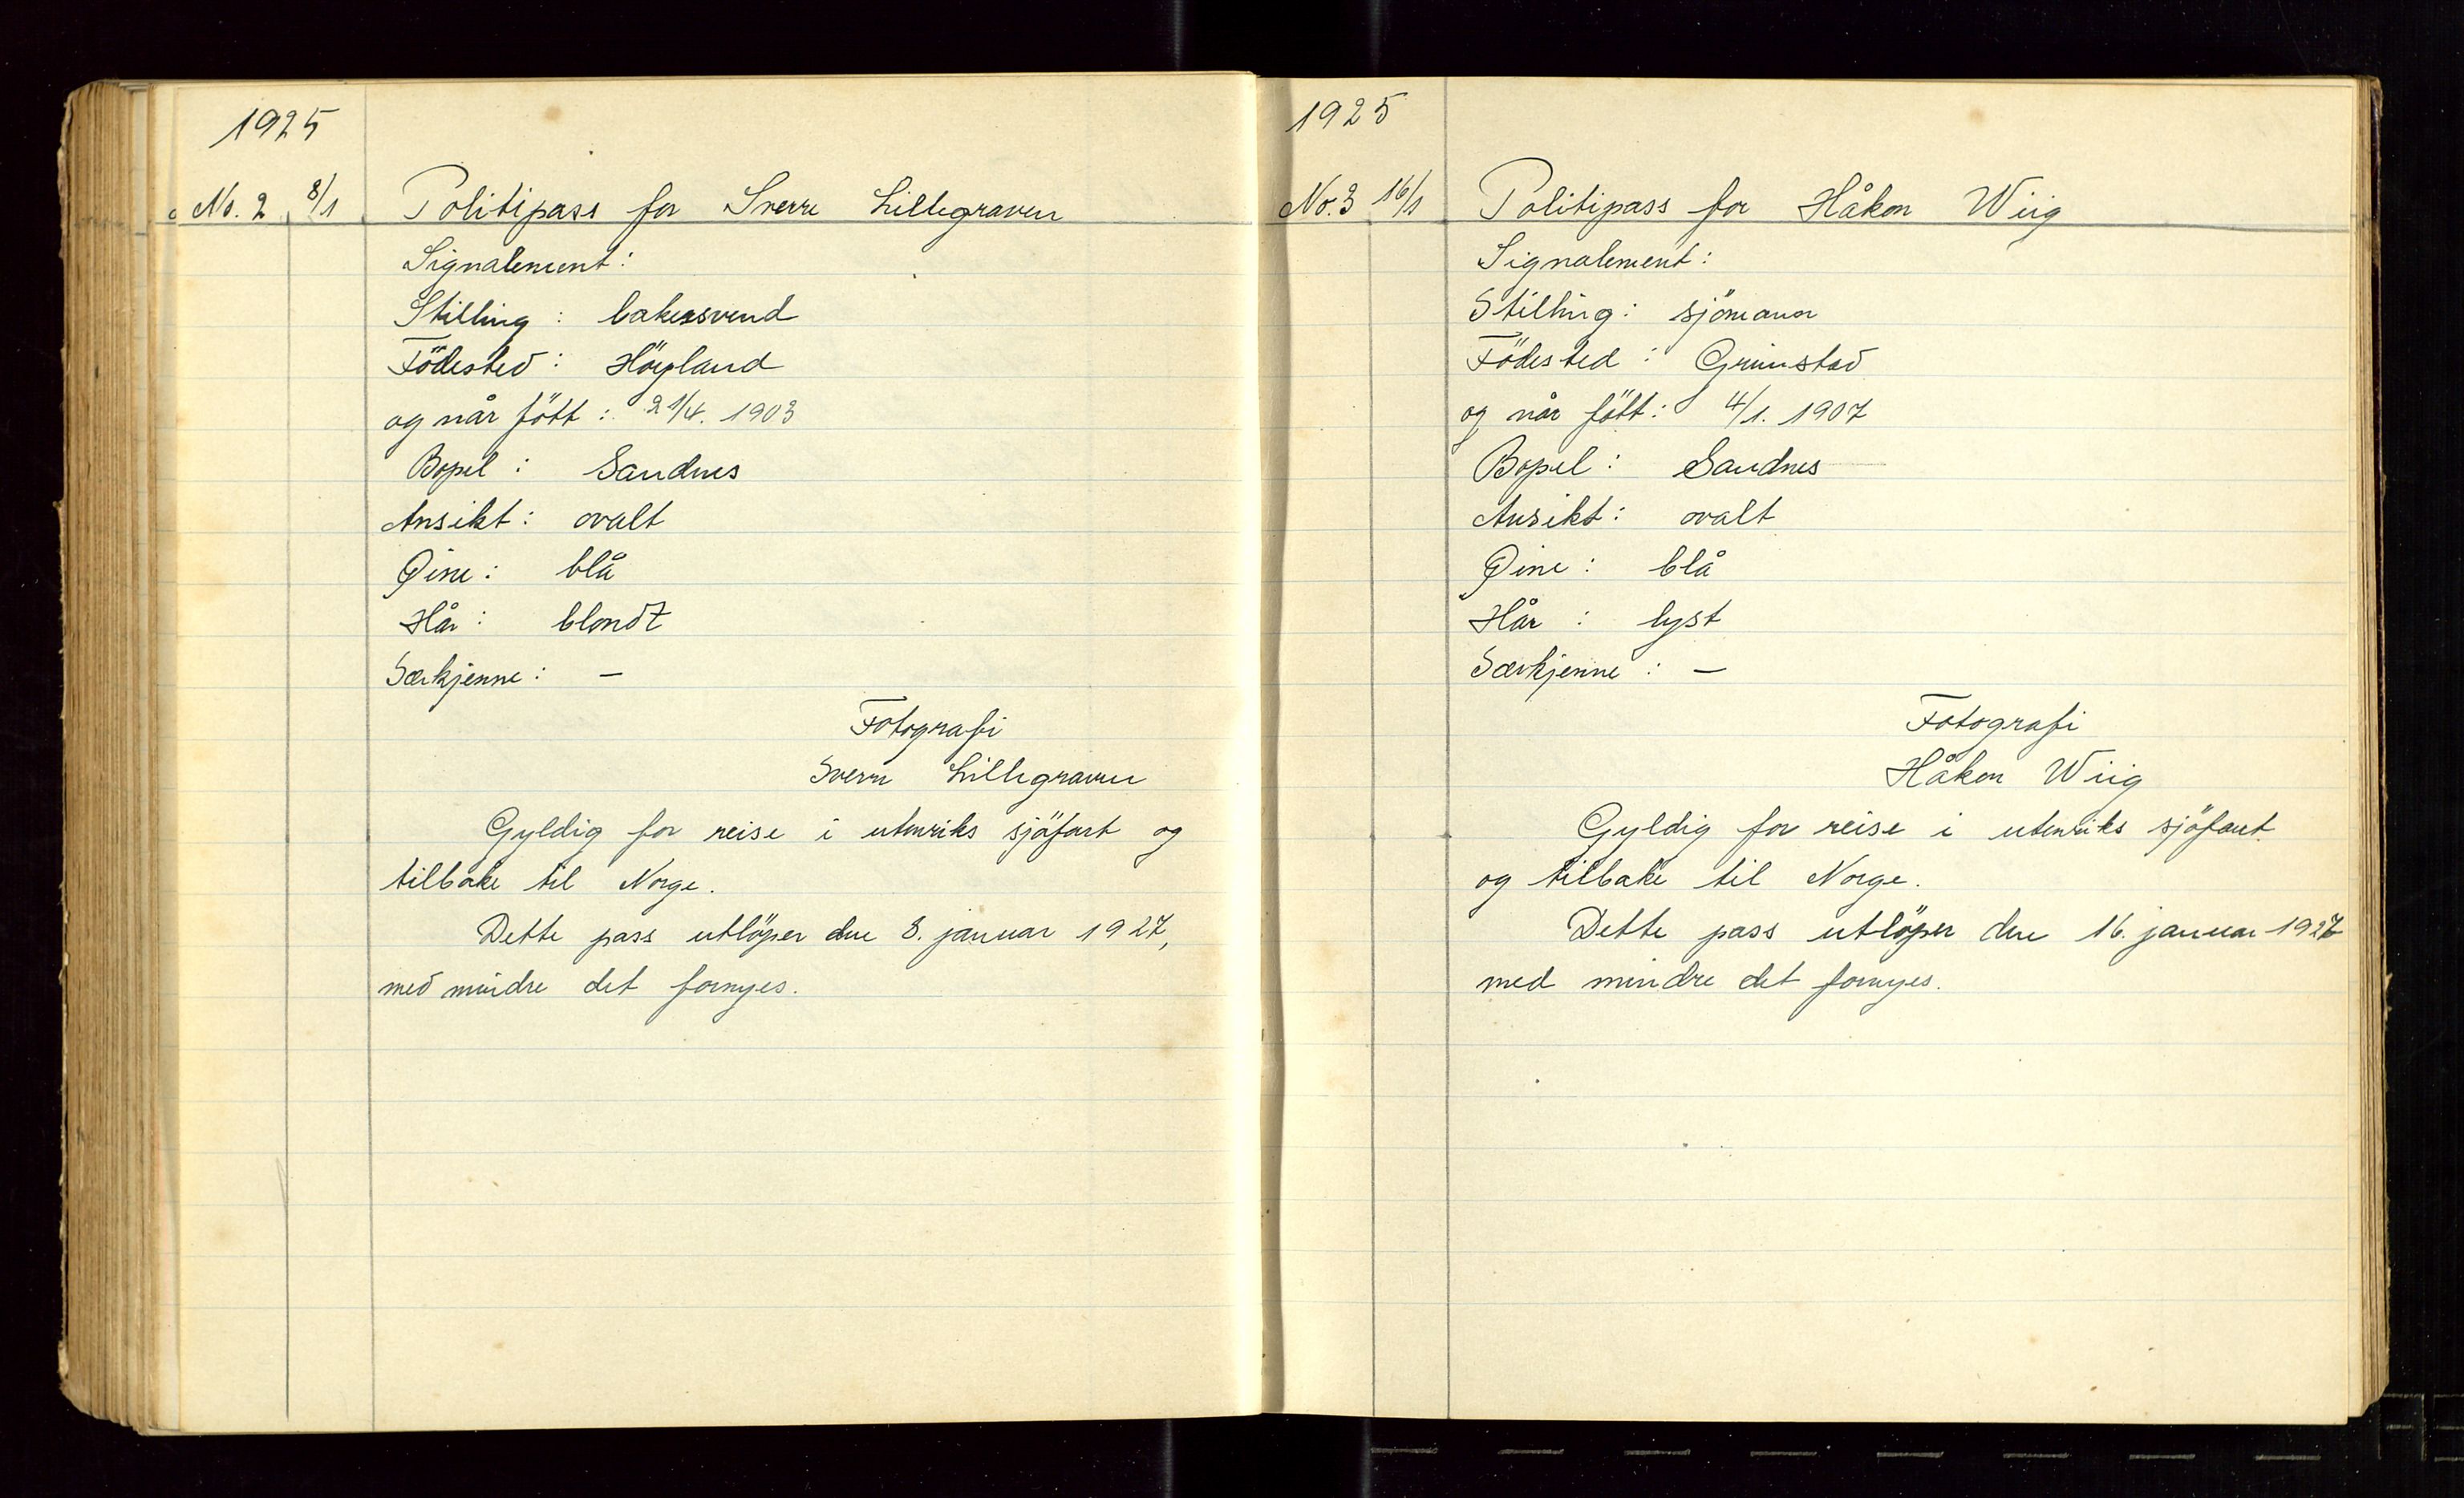 1925
No. 2 8/1 Politipass for Sverre Lillegraven
Signalement:
Stilling: bakersvend
Födested: Höyland
og når fött: 21/4. 1903
Bopel: Sandnes
Ansikt: ovalt
Øine: blå
Hår: blondt
Særkjenne: —
Fotografi
Sverre Lillegraven
Gyldig for reise i utenriks sjöfart og
tilbake til Norge.
Dette pass utlöper den 8. januar 1927,
med mindre det fornyes.
1925
No. 3 16/1 Politipass for Håkon Wiig
Signalement:
Stilling: sjömann
Födested: Grimstad
og når fött: 4/1. 1907
Bopel: Sandnes
Ansikt: ovalt
Øine: blå
Hår: lyst
Særkjenne: —
Fotografi
Håkon Wiig
Gyldig for reise i utenriks sjöfart
og tilbake til Norge.
Dette pass utlöper den 16. januar 1927
med mindre det fornyes.